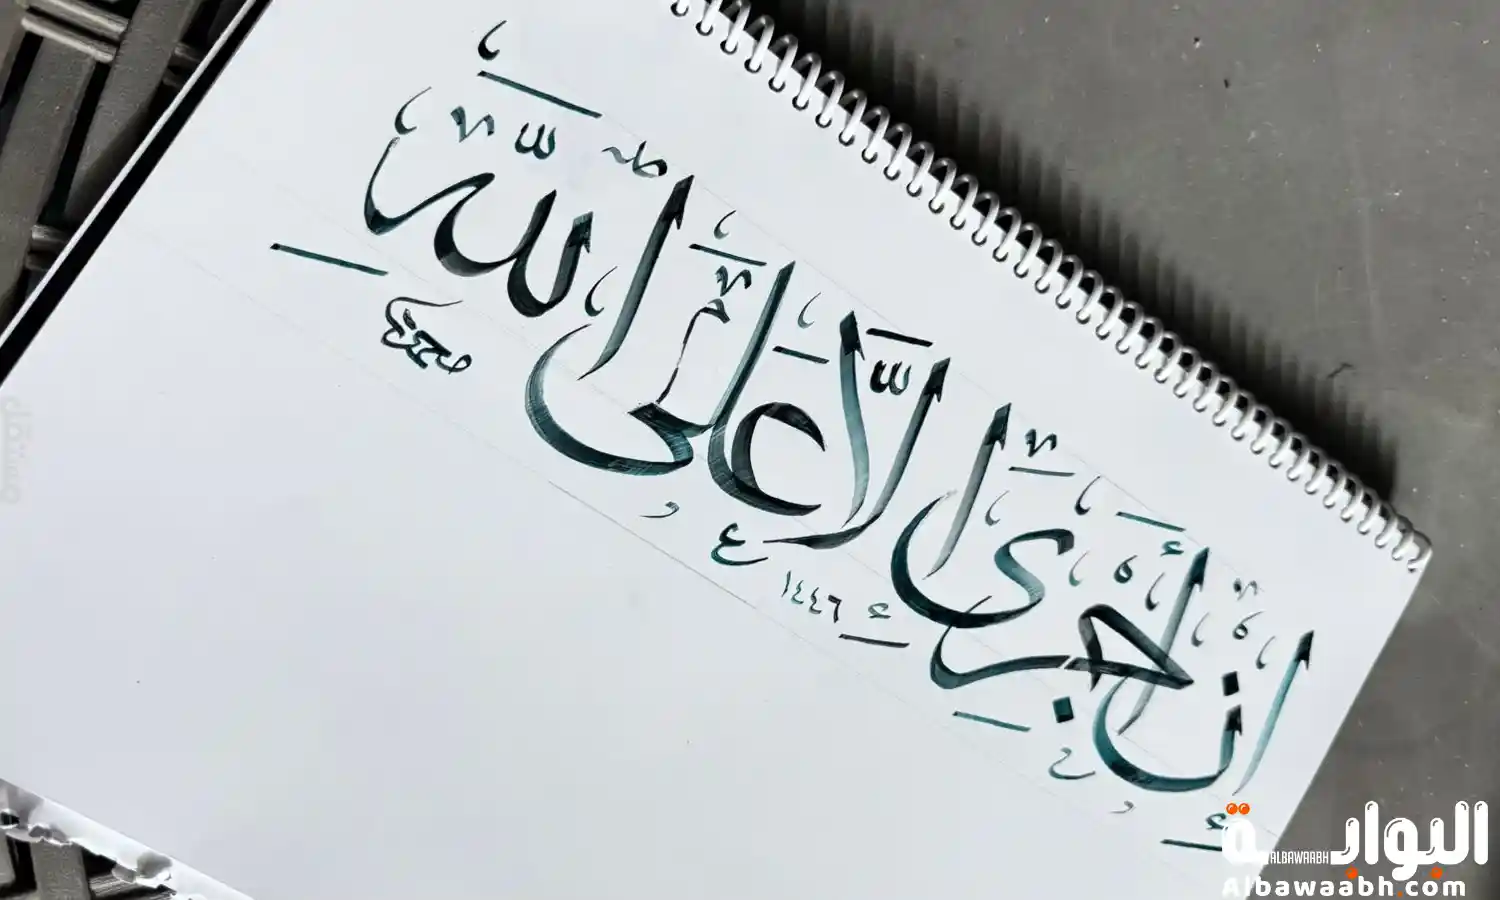 إِنْ أَجْرِيَ إِلَّا عَلَى اللَّهِ
١٤٤٦
البوابة
ALBAWAABH
Albawaabh.com